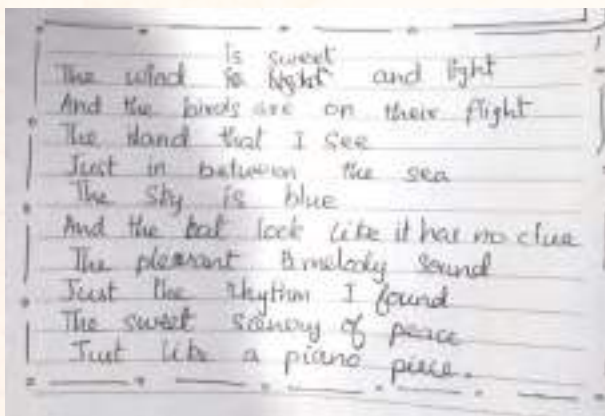 is sweet
The wind is light and light
And the birds are on their flight
The Iland that I see
Just in between the sea
The sky is blue
And the bat look like it has no clue
The pleasant melody sound
Just the rhythm I found
The sweet scenery of peace
Just like a piano piece.